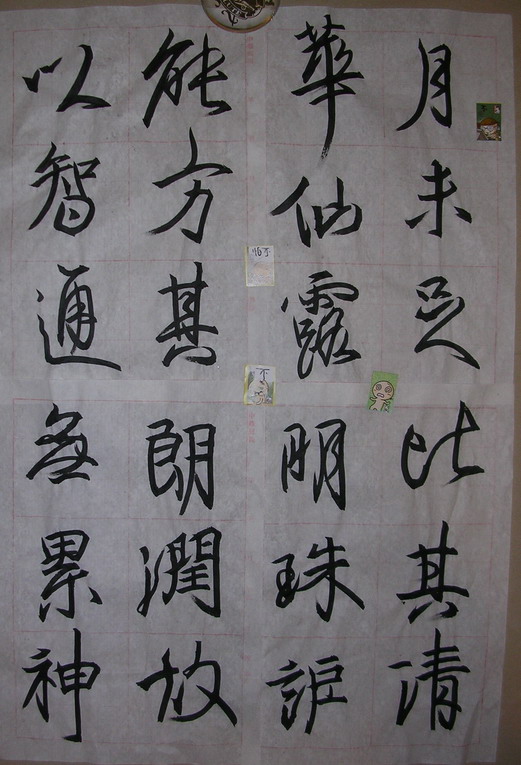 月未足比其清
華仙露明珠詎
能方其朗潤故
以智通無累神